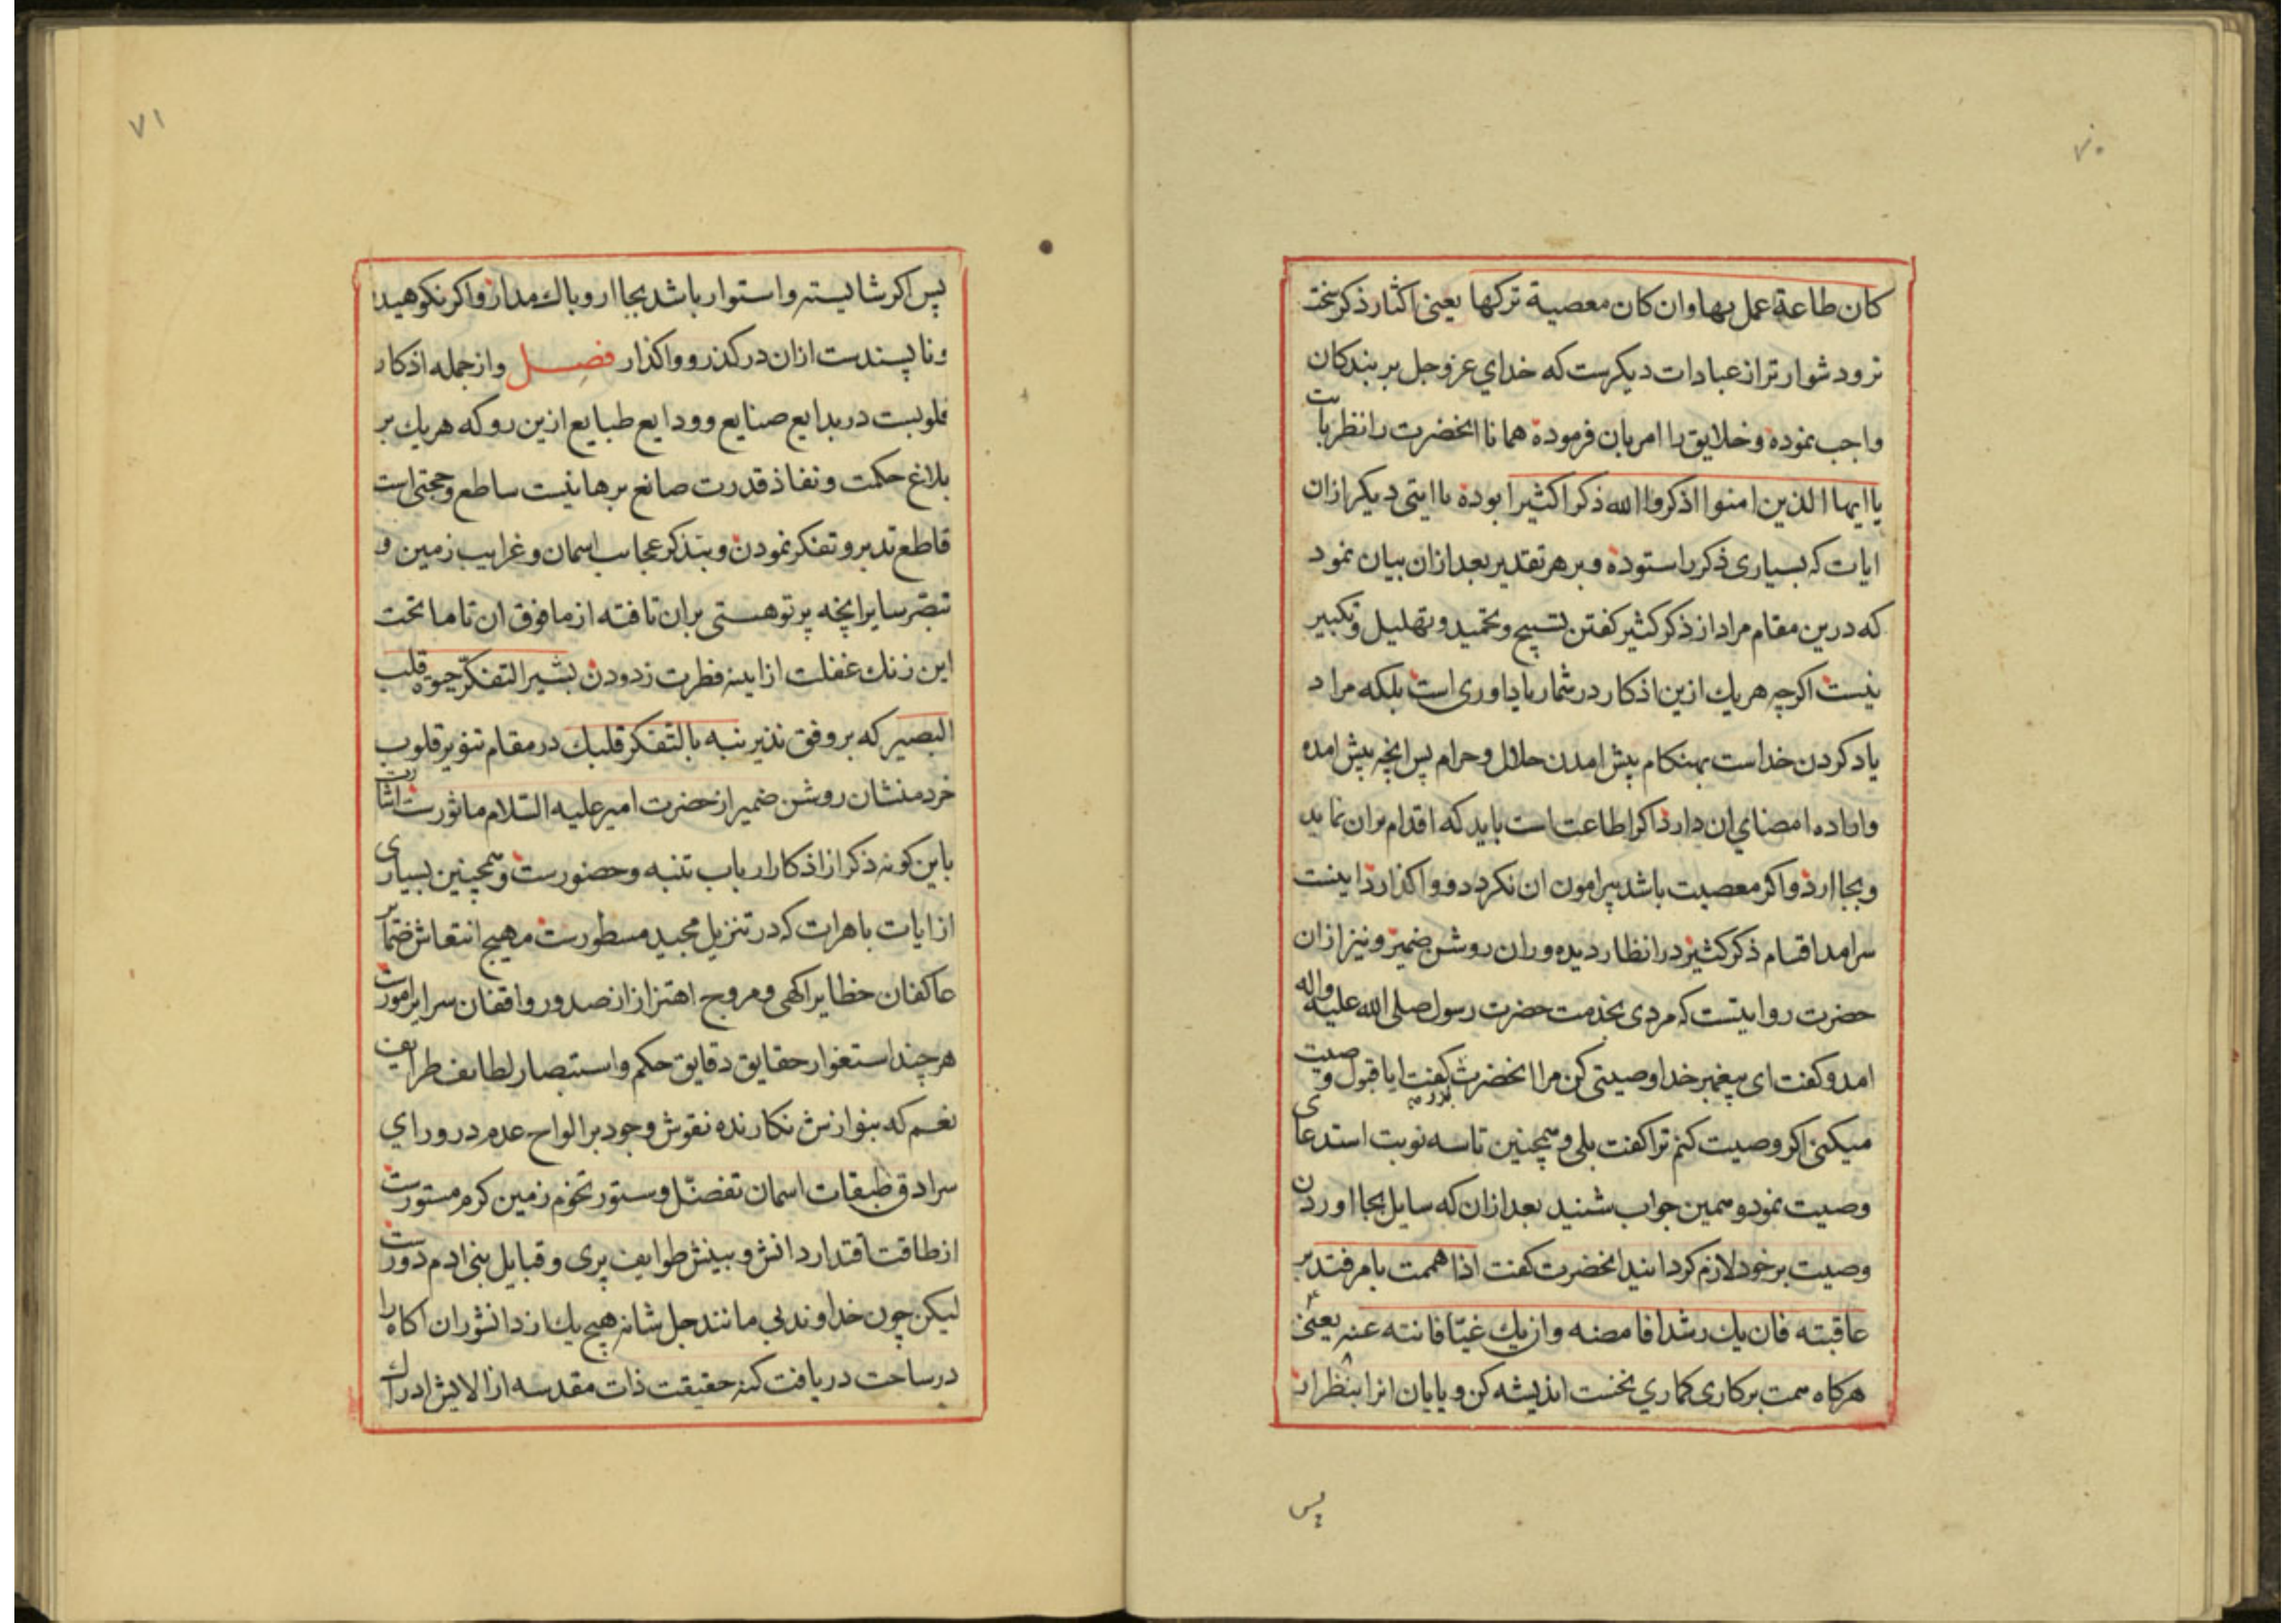 ۷۰
کان طاعة عمل بها وان کان معصیة ترکها یعنی اکثار ذکر سخت
تر و دشوارتر از عبادات دیکرست که خدای عز و جل بر بندکان
واجب نموده و خلایق را امر بان فرموده همانا انحضرت را نظر بایت
یا ایها الذین امنوا اذکروا الله ذکرا کثیرا بوده یا ایتی دیکر ازان
ایات که بسیاری ذکر را ستوده و بر هر تقدیر بعد ازان بیان نمود
که درین مقام مراد از ذکر کثیر کفتن تسبیح و تحمید و تهلیل و تکبیر
نیست اکرچه هر یك ازین اذکار در شمار یاداوری است بلکه مراد
یاد کردن خداست بهنکام پیش امدن حلال و حرام پس انچه پیش امده
واراده امضای ان دارد اکر اطاعت است باید که اقدام بران نماید
و بجا ارد و اکر معصیت باشد پیرامون ان نکردد و واکذارد اینست
سرامد اقسام ذکر کثیر در انظار دیده وران روشن ضمیر و نیز ازان
حضرت روایتست که مردی بخدمت حضرت رسول صلی الله علیه واله
امد و کفت ای پیغمبر خدا وصیتی کن مرا انحضرت کفت ایا قبول وصیت
میکنی اکر وصیت کنم ترا کفت بلی و همچنین تا سه نوبت استدعای
وصیت نمود و همین جواب شنید بعد ازان که سایل بجا اوردن
وصیت بر خود لازم کردانید انحضرت کفت اذا هممت بامر فتدبر
عاقبته فان یك رشدا فامضه وان یك غیّا فانته عنه یعنی
هرکاه همت بر کاری کماری نخست اندیشه کن و پایان انرا بنظر ار
پس
۷۱
پس اکر شایسته و استوار باشد بجا ار و باك مدار و اکر نکوهیده
و ناپسندست ازان درکذر و واکذار فصل و از جمله اذکار
قلوبست در بدایع صنایع و ودایع طبایع ازین رو که هر یك بر
بلاغ حکمت و نفاذ قدرت صانع برهانیست ساطع و حجتی است
قاطع تدبر و تفکر نمودن و بتذکر عجایب اسمان و غرایب زمین و
تبصّر سایر انچه پرتو هستی بران تافته از مافوق ان تا ماتحت
این زنك غفلت از اینه فطرت زدودن بشیر التفکّر حیوة قلب
البصیر که بر وفق نذیر نبه بالتفکر قلبك در مقام تنویر قلوب
خردمنشان روشن ضمیر از حضرت امیر علیه السّلام ماثورست اشارت
باین کونه ذکر از اذکار ارباب تنبه و حضورست و همچنین بسیاری
از ایات باهرات که در تنزیل مجید مسطورست مهیج انتعاش ضمایر
عاکفان حظایر اکهی و مروج اهتزاز از صدور واقفان سرایر امورست
هر چند استغوار حقایق دقایق حکم و استبصار لطایف طرایف
نعم که بنوازش نکارنده نقوش وجود بر الواح عدم در ورای
سرادق طبقات اسمان تفضّل و ستور تخوم زمین کرم مستورست
از طاقت اقتدار دانش و بینش طوایف پری و قبایل بنی ادم دورست
لیکن چون خداوند بی مانند جل شانه هیچ یك از دانشوران اکاه را
در ساحت دریافت کنه حقیقت ذات مقدسه از الایش ادراك